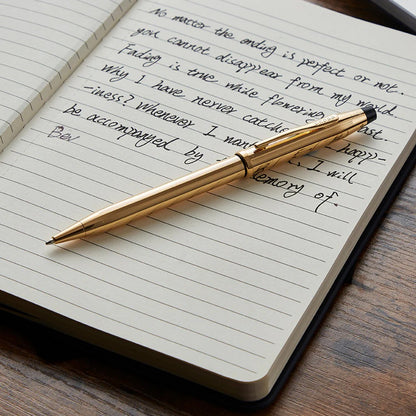 No matter the ending is perfect or not.
you cannot disappear from my world.
Fading is true while flowering past.
Why I have nerver catch happ-
-iness? Whenever I I will
be accompanyed by memory of.
Bev